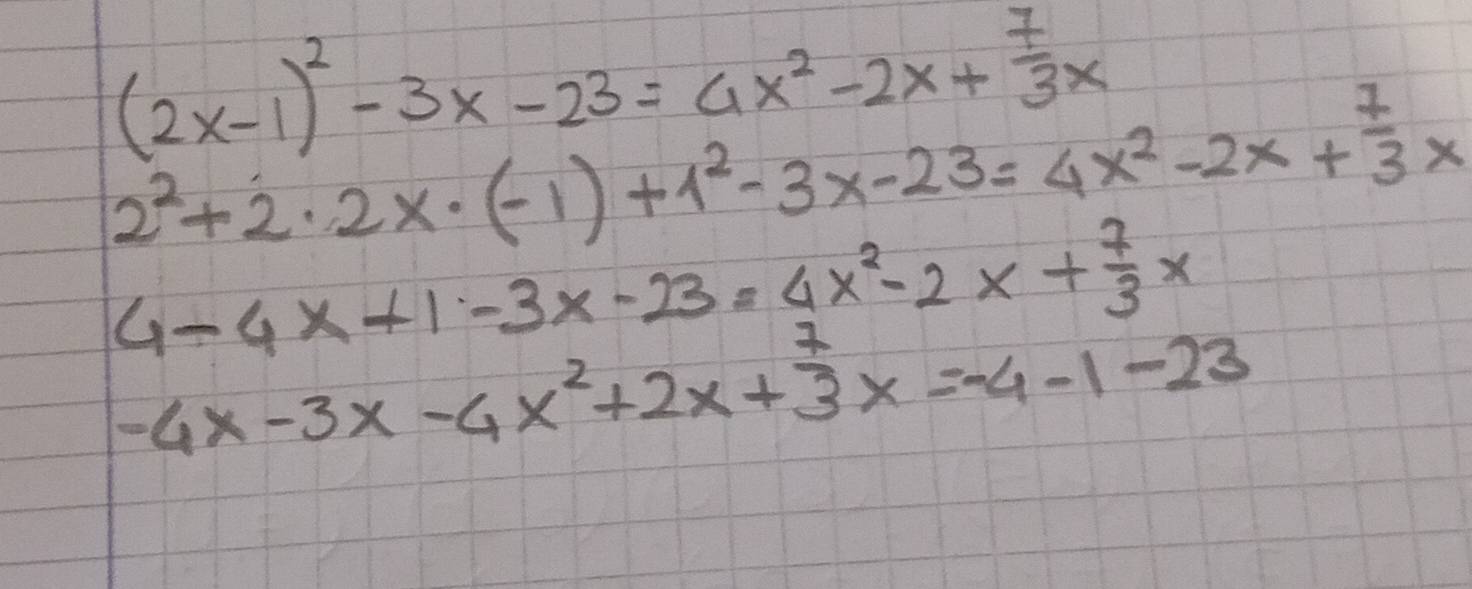 (2x-1)² - 3x - 23 = 4x² - 2x + 7/3 x
2² + 2 · 2x · (-1) + 1² - 3x - 23 = 4x² - 2x + 7/3 x
4 - 4x + 1 - 3x - 23 = 4x² - 2x + 7/3 x
-4x - 3x - 4x² + 2x + 7/3 x = -4 - 1 - 23